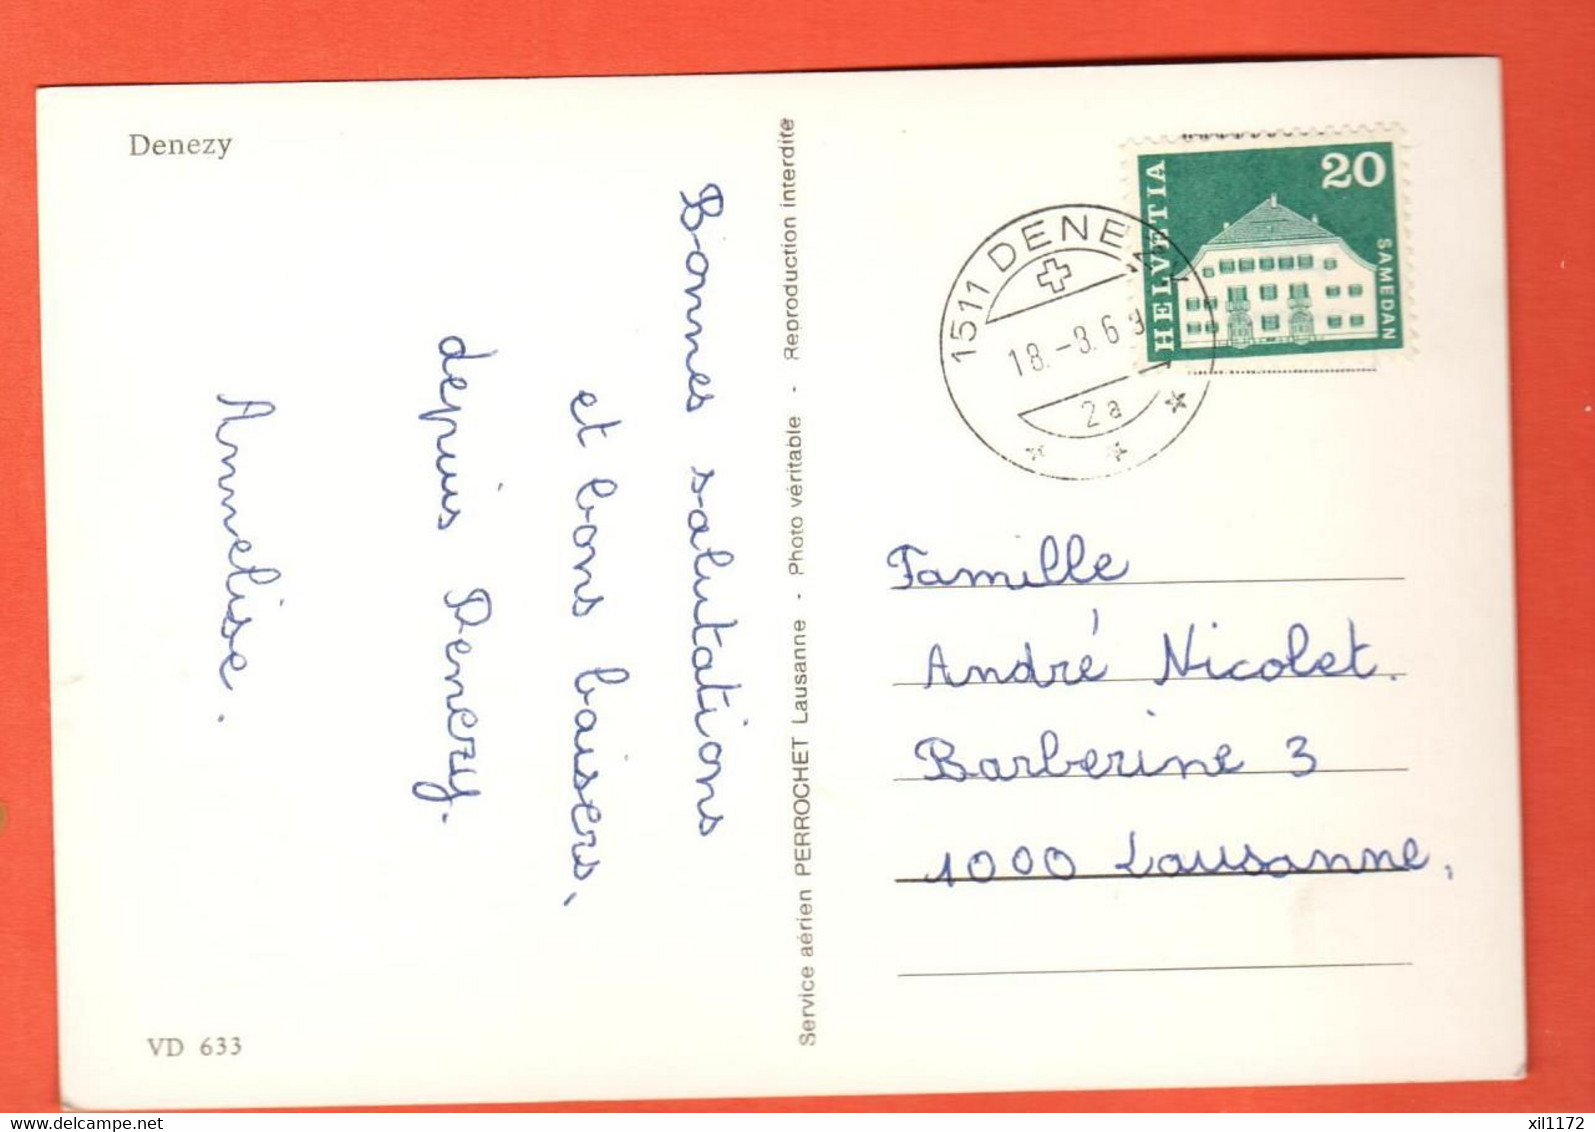 Denezy
Bonnes salutations
et bons baisers,
depuis Denezy.
Annelise.
VD 633
Service aérien PERROCHET Lausanne - Photo véritable - Reproduction interdite
1511 DENEZY
18.-3.69
2a
HELVETIA
20
SAMEDAN
Famille
André Nicolet.
Barberine 3
1000 Lausanne,
delcampe.net
xil1172